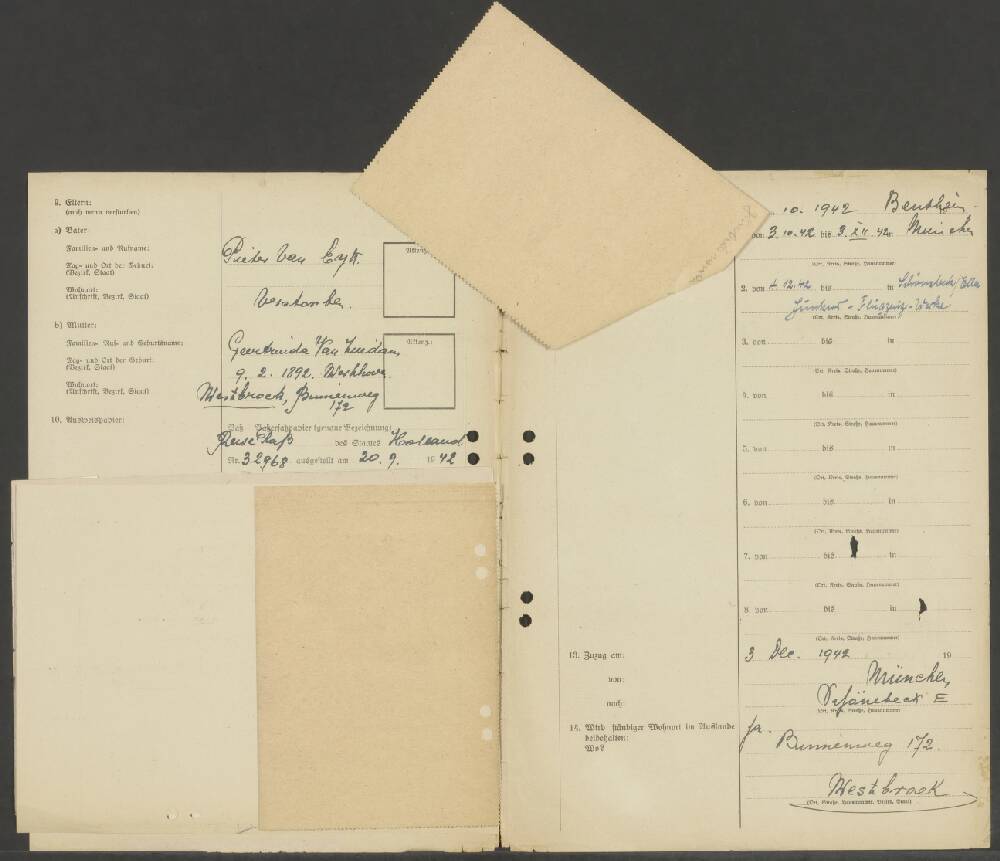 9. Eltern:
(auch wenn verstorben)
a) Vater:
Familien- und Rufname:
Pieter Van Eyk.
Tag- und Ort der Geburt:
(Bezirk, Staat)
Wohnort:
(Anschrift, Bezirk, Staat)
Verstorben.
b) Mutter:
Familien-, Ruf- und Geburtsname:
Geertruida Van
Tag- und Ort der Geburt:
(Bezirk, Staat)
9. 2. 1892.
Wohnort:
(Anschrift, Bezirk, Staat)
Westbroek, Binnenweg
172
10. Ausweispapier:
Paß
(genaue Bezeichnung)
Reise Paß des Staates Holland
Nr. 32968 ausgestellt am 20. 9. 1942
10. 1942 Bentheim
von 3.10.42 bis 3. XII. 42 in München
(Ort, Kreis, Straße, Hausnummer)
2. von 4.12.42 bis in Schönebeck/Elbe
Junkers-Flugzeug-Werke
(Ort, Kreis, Straße, Hausnummer)
3. von bis in
(Ort, Kreis, Straße, Hausnummer)
4. von bis in
(Ort, Kreis, Straße, Hausnummer)
5. von bis in
(Ort, Kreis, Straße, Hausnummer)
6. von bis in
(Ort, Kreis, Straße, Hausnummer)
7. von bis in
(Ort, Kreis, Straße, Hausnummer)
8. von bis in
(Ort, Kreis, Straße, Hausnummer)
13. Zuzug am: 3 Dec. 1942 19
von: München,
nach: Schönebeck E
(Ort, Kreis, Straße, Hausnummer)
14. Wird ständiger Wohnort im Auslande
beibehalten: ja.
Wo?
Binnenweg 172.
Westbroek
(Ort, Straße, Hausnummer, Bezirk, Staat)